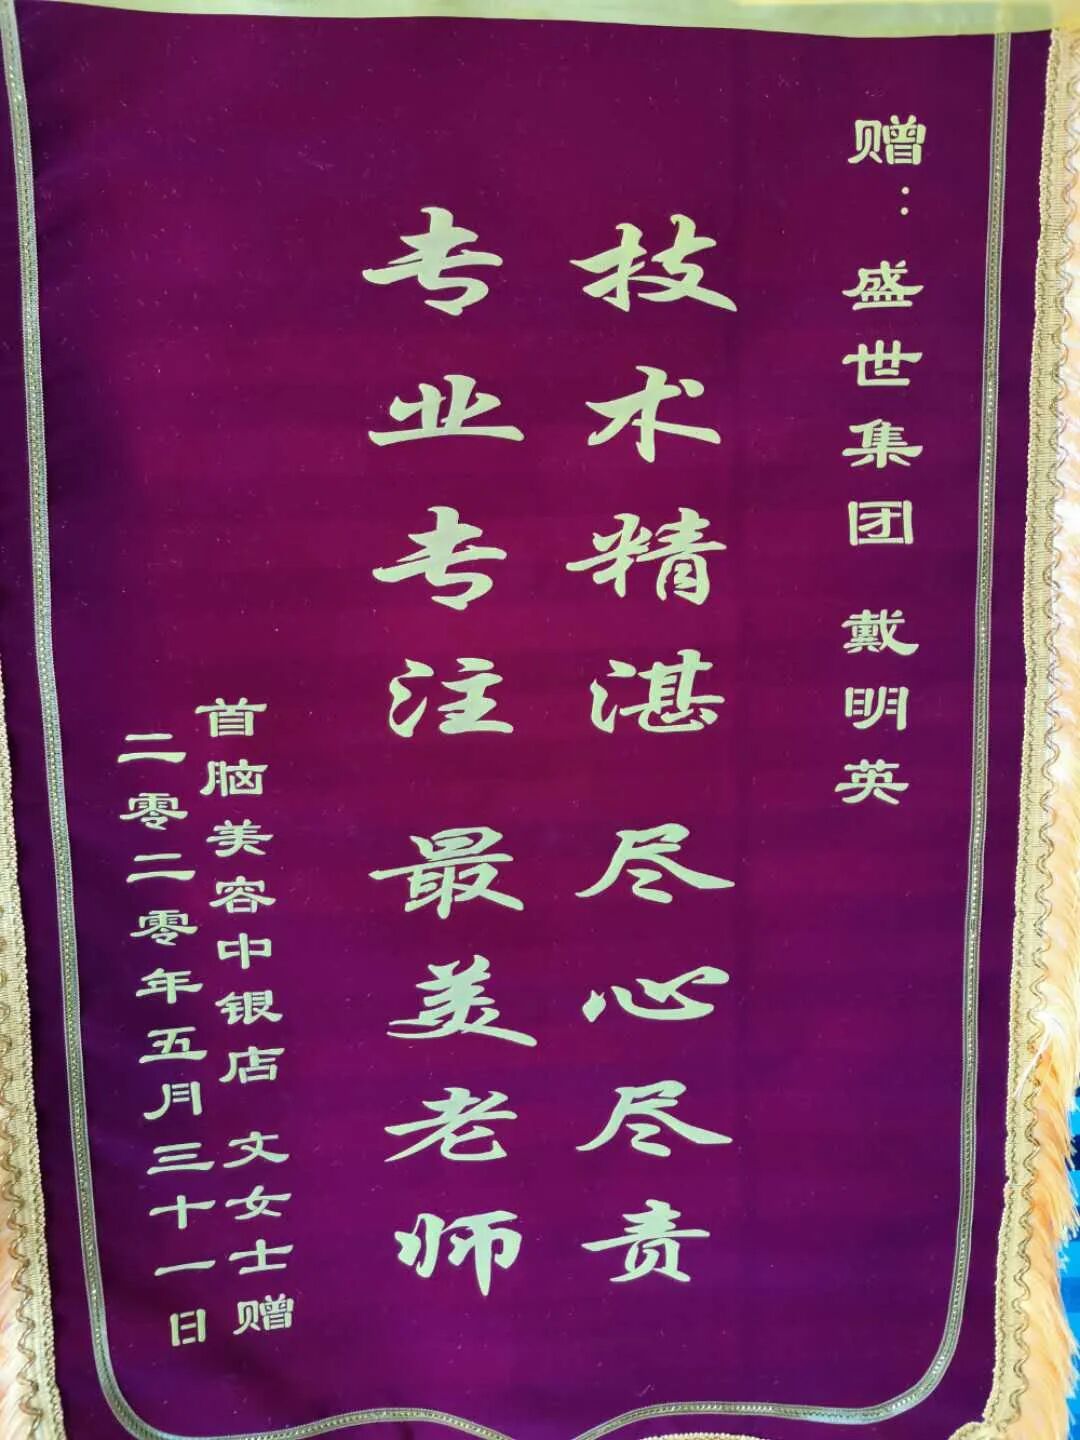 赠：盛世集团 戴明英
技术精湛 尽心尽责
专业专注 最美老师
首脑美容中银店 文女士赠
二零二零年五月三十一日